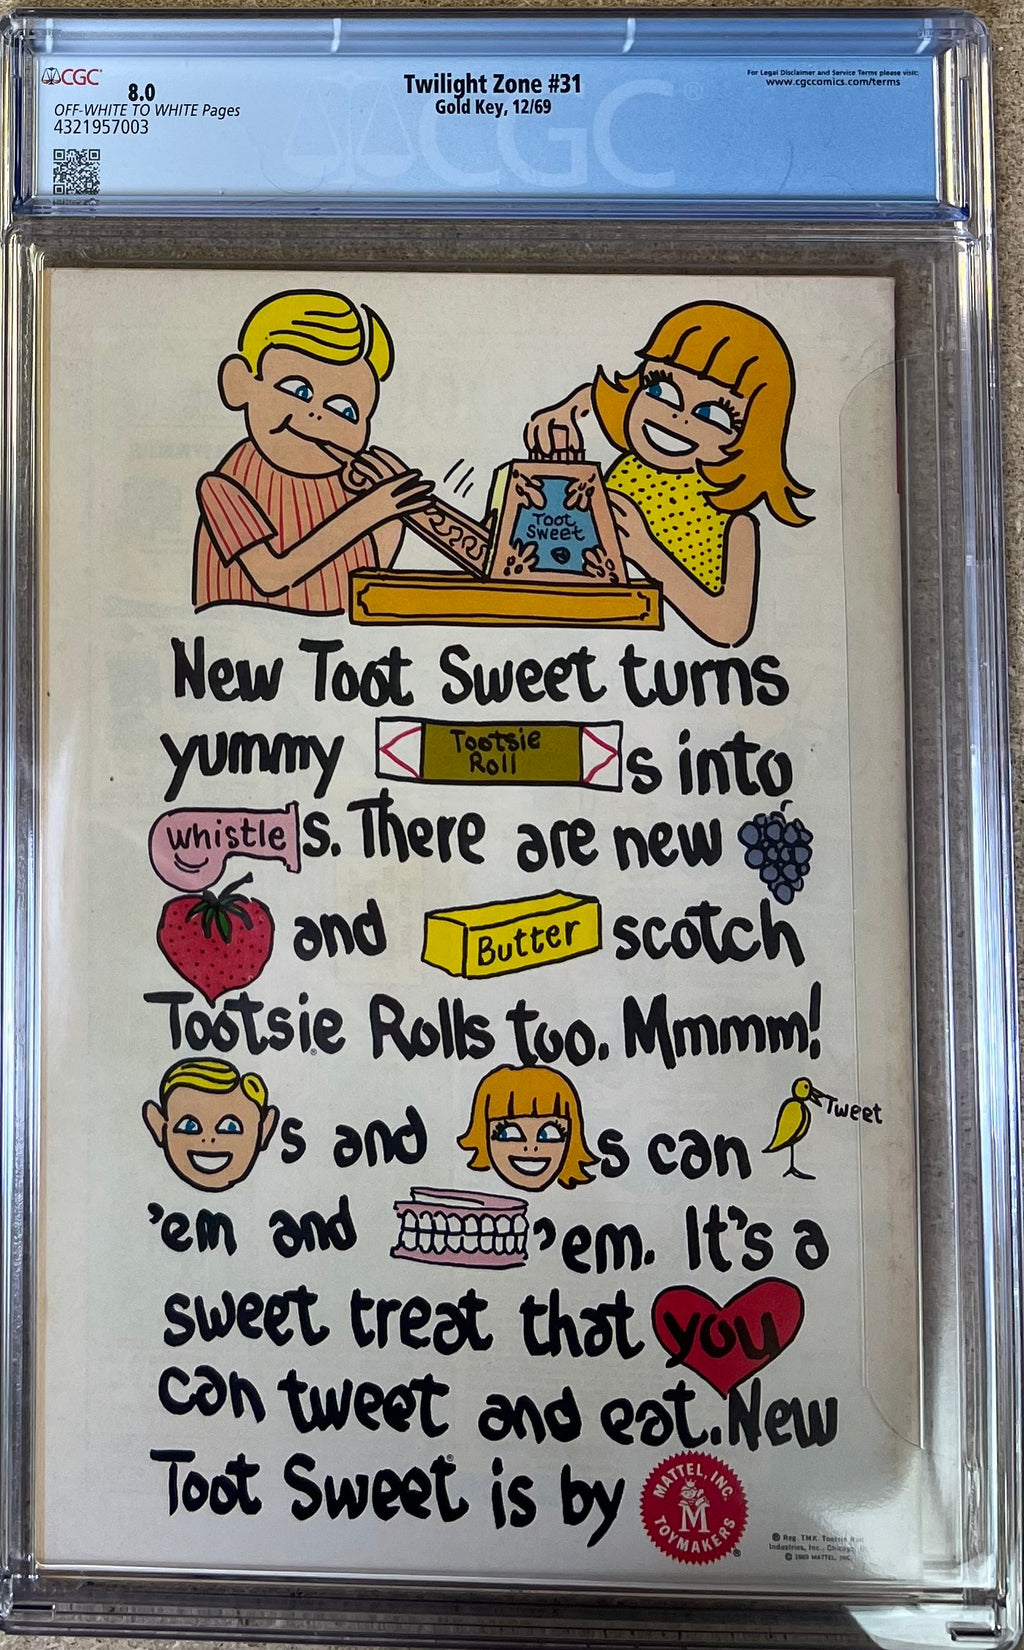 CGC
8.0
OFF-WHITE TO WHITE Pages
4321957003
Twilight Zone #31
Gold Key, 12/69
For Legal Disclaimer and Service Terms please visit:
www.cgccomics.com/terms
CGC
Toot
Sweet
New Toot Sweet turns
yummy Tootsie Roll s into
whistle s. There are new
and Butter scotch
Tootsie Rolls too. Mmmm!
s and s can Tweet
'em and 'em. It's a
sweet treat that you
can tweet and eat. New
Toot Sweet® is by MATTEL, INC. TOYMAKERS M ®
® Reg. T.M.K. Tootsie Roll
Industries, Inc., Chicago
© 1969 MATTEL, INC.